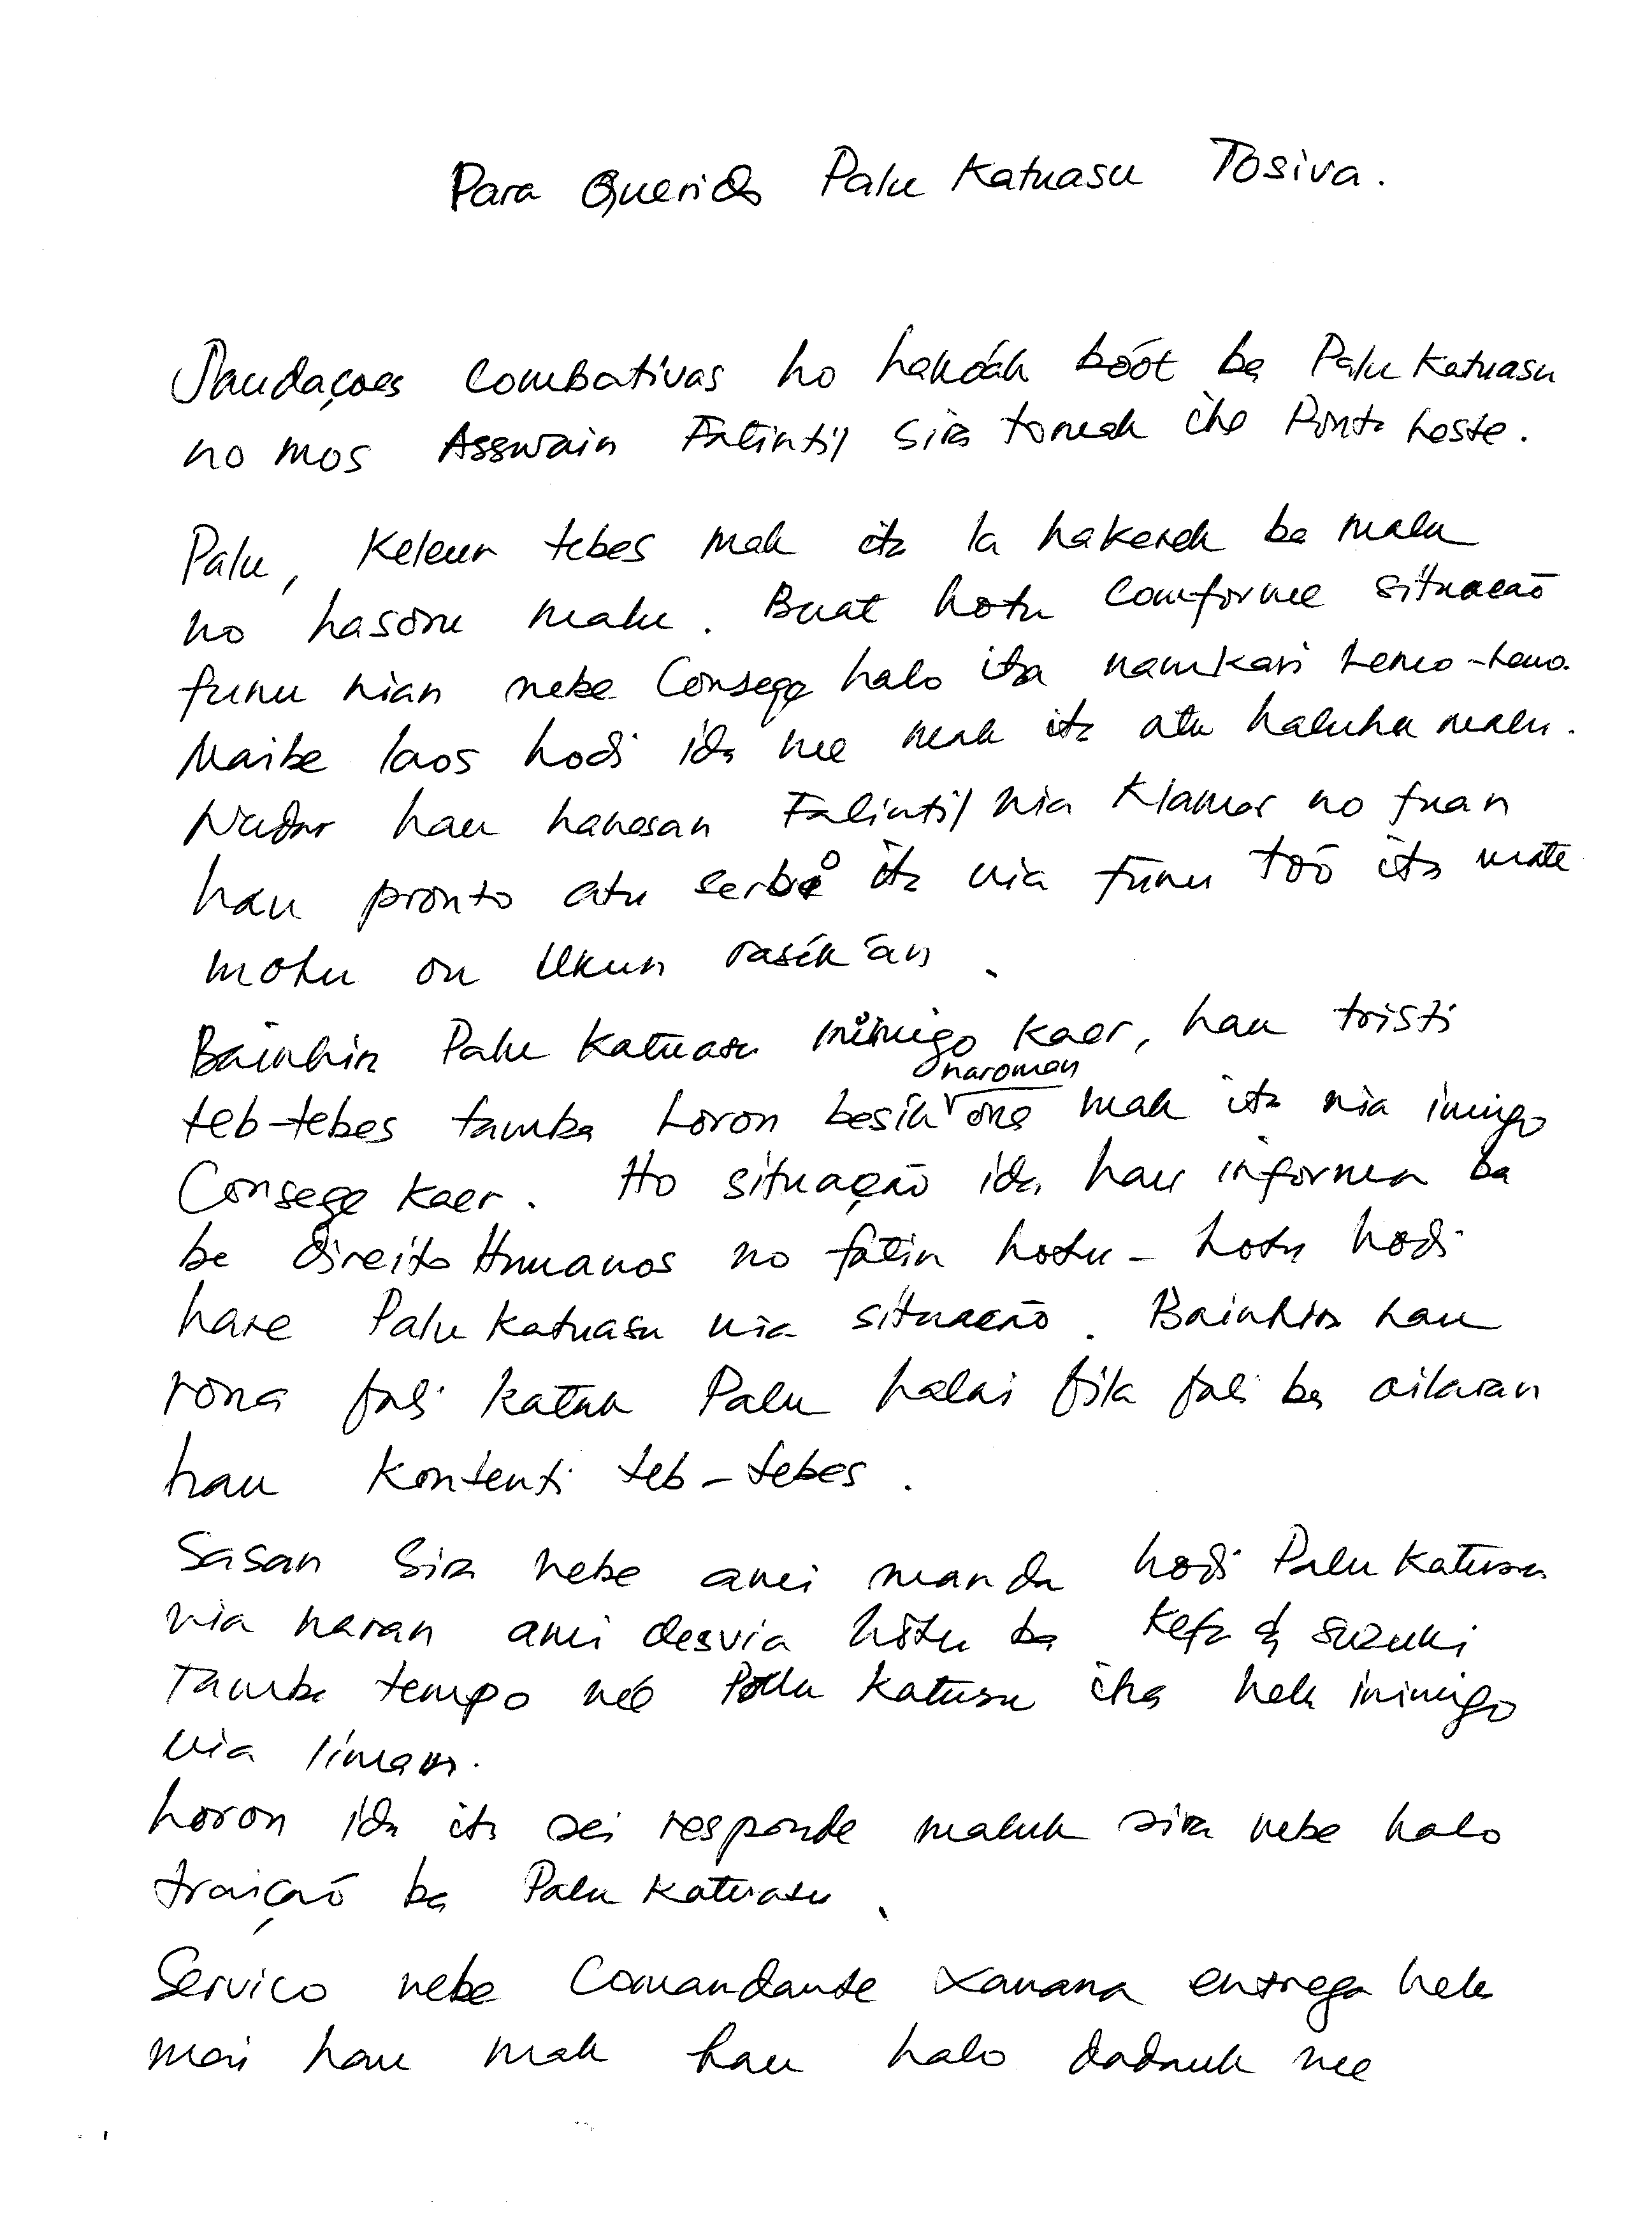 Para Querido Palu Katuasu Tosiva.
Saudaçoes Combativas ho hakóak bóót ba Palu Katuasu
no mos Asswain Falintil sira tomak iha Ponta Leste.
Palu, Keleur tebes mak ita la hakerek ba malu
no hasoru malu. Buat hotu Comforme situacão
funu nian nebe Consege halo ita namkari lemo-lemo.
Maibe laos hodi ida nee mak ita atu haluha malu.
Nudar hau hanesan Falintil nia Klamar no fuan
hau pronto atu serbio ita nia funu too ita mate
mohu ou Ukun rasik an.
Bainhira Palu Katuasu inimigo kaer, hau tristi
naroman
teb-tebes tamba Loron besik ona mak ita nia inimigo
Consege kaer. Ho situação ida hau informa ba
ba direito Humanos no fatin hotu-hotu hodi
hare Palu Katuasu nia situacão. Bainhira hau
rona fali katak Palu halai fila fali ba ailaran
hau Kontenti teb-tebes.
Sasan Sira nebe ami manda hodi Palu Katuasu
nia naran ami desvia hotu ba Kefa & Suzuki
Tamba tempo néé Palu Katuasu iha hela inimigo
nia liman.
Loron ida ita sei responde maluk sira nebe halo
traição ba Palu Katuasu.
Servico nebe Comandante Xanana entrega hela
mai hau mak hau halo dadauk nee